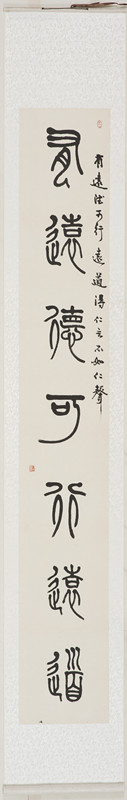 有遠德可行遠道
有遠德可行遠道得仁言不如仁聲